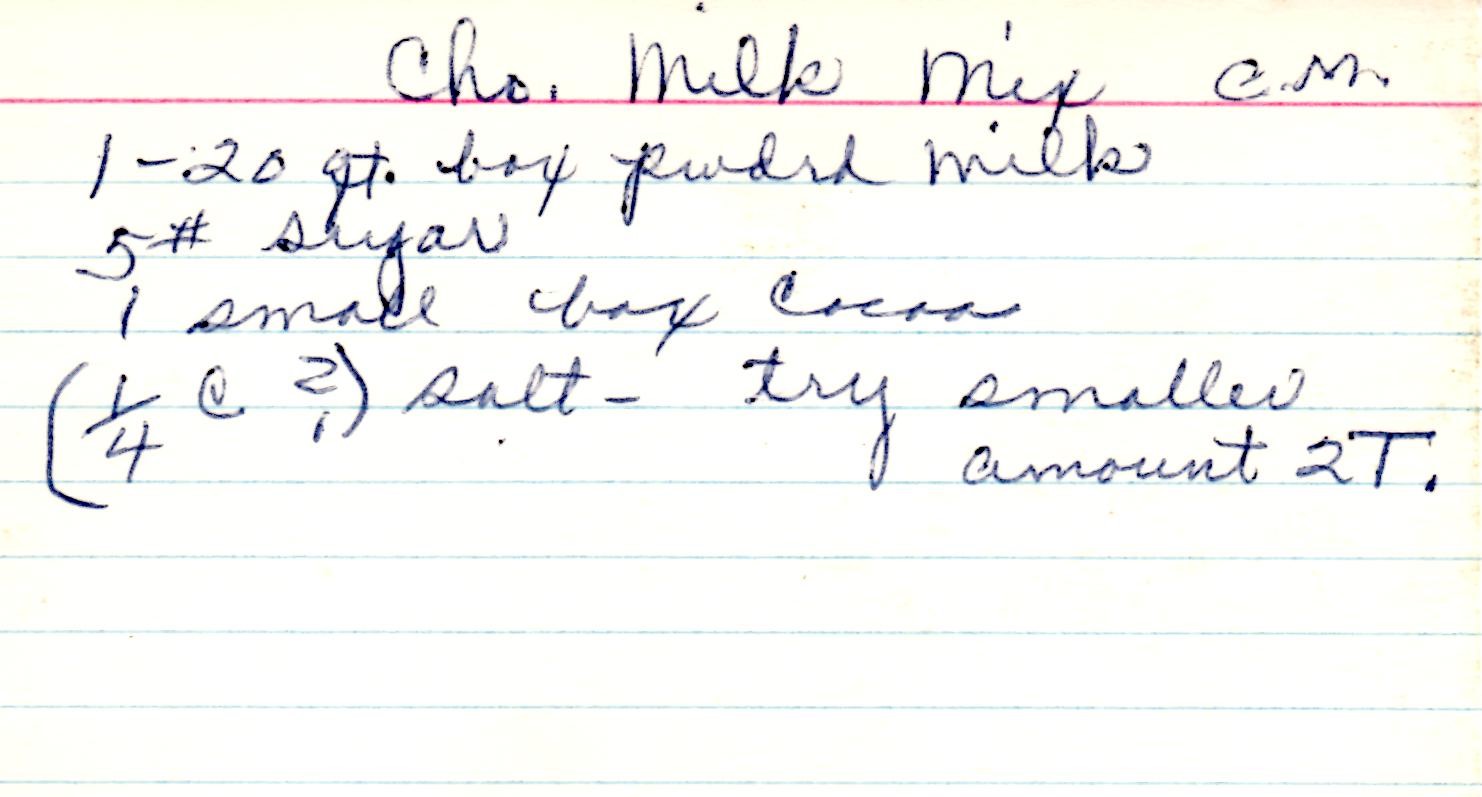 Cho. Milk Mix C.M.
1-20 qt. box pwdrd milk
5# sugar
1 small box Cocoa
(1/4 C ?) salt - try smaller
amount 2T.